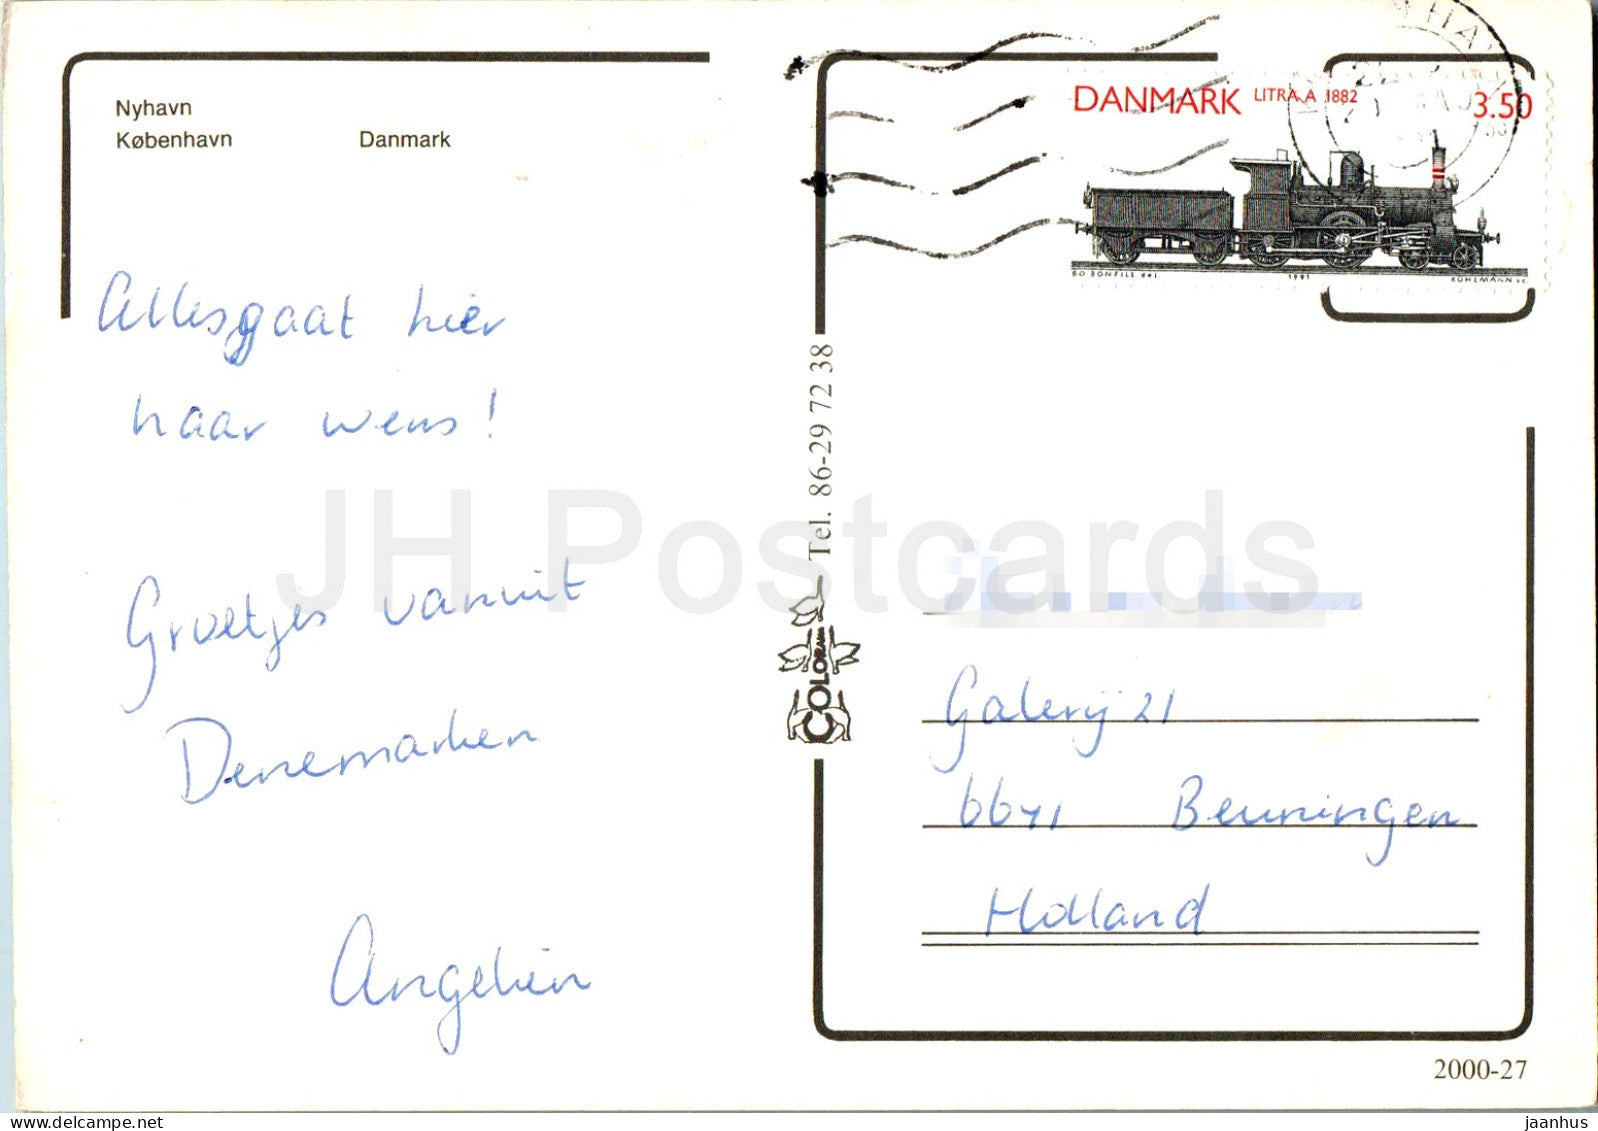 Nyhavn
København Danmark
Alles gaat hier
naar wens!
Groetjes vanuit
Denemarken
Angelien
Tel. 86-29 72 38
COLOR
DANMARK LITRA A 1882 3.50
BO BONFILS del. 1991 KUHLMANN sc.
Galerij 21
6641 Beuningen
Holland
2000-27
JH Postcards
jaanhus | www.delcampe.net